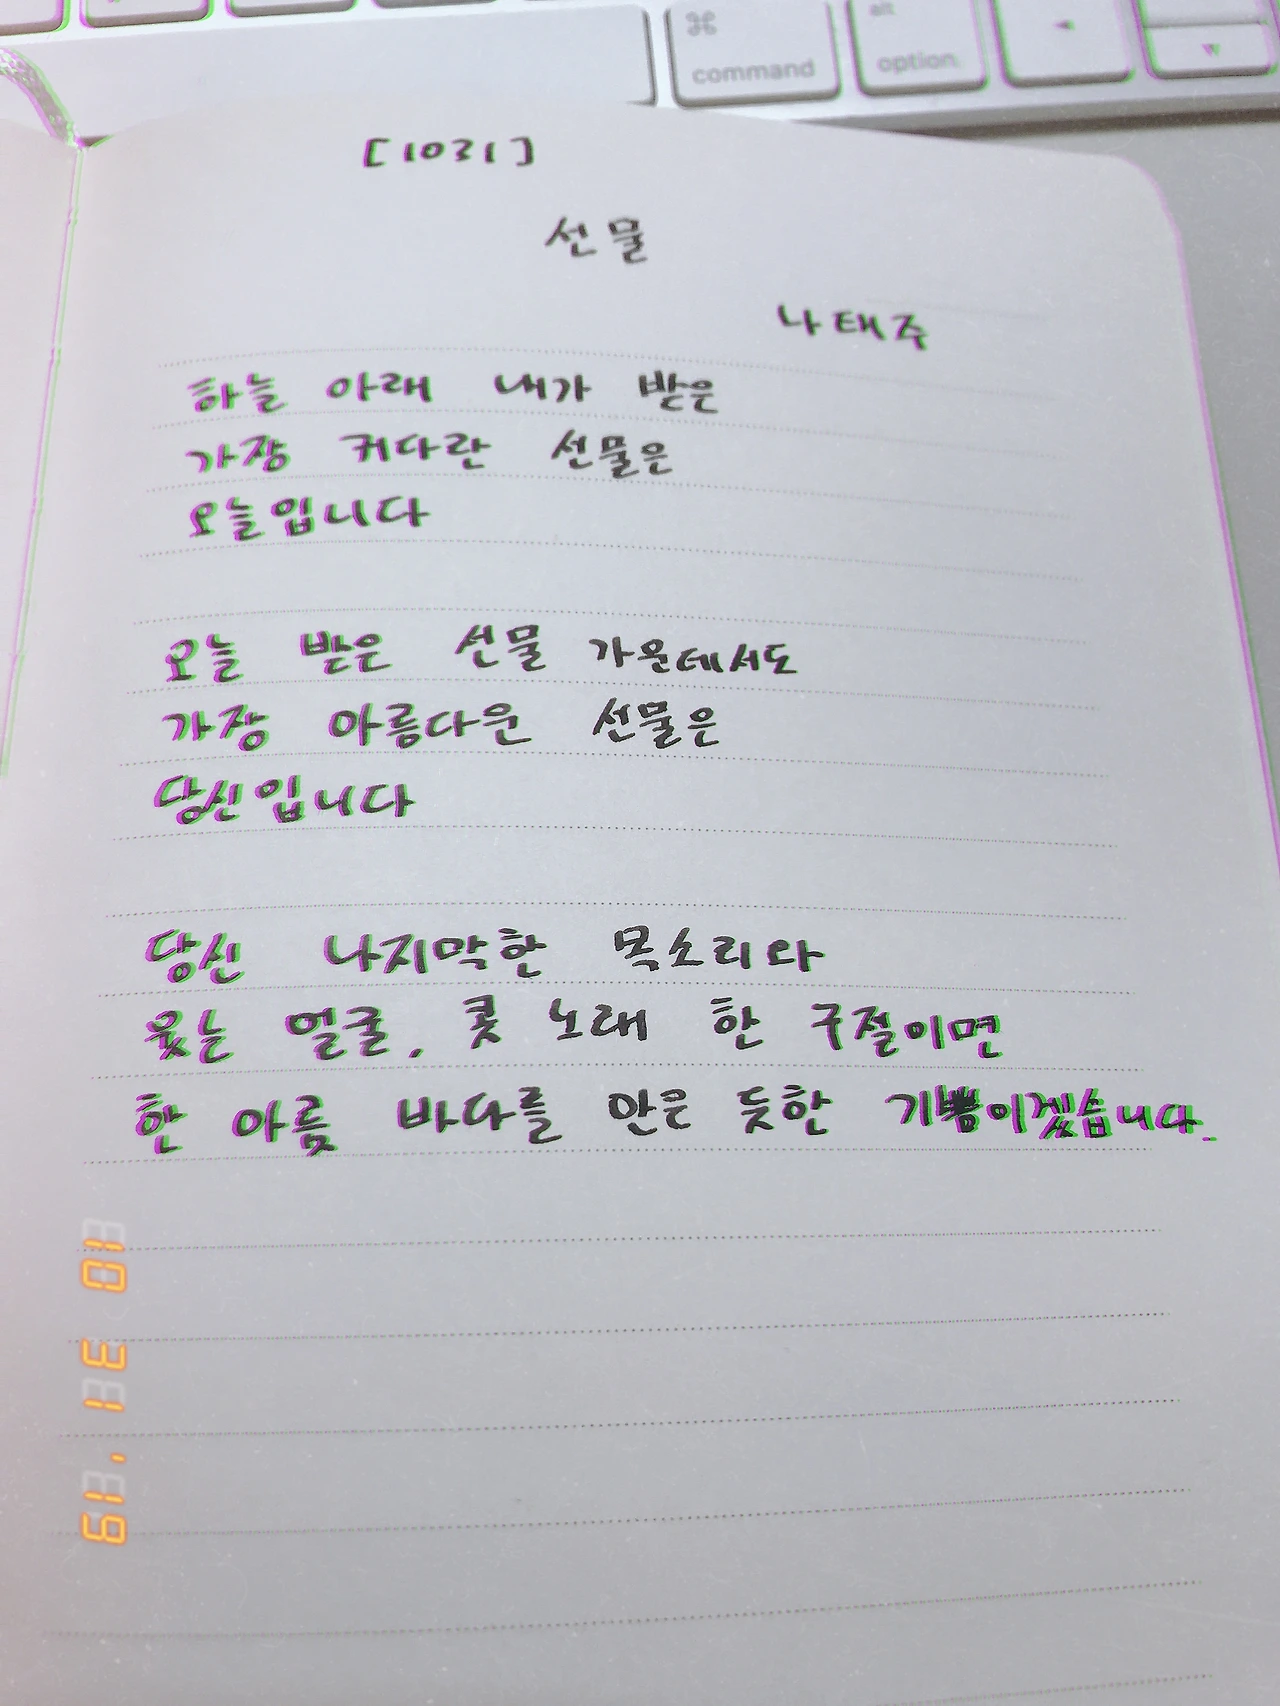 ⌘ alt
command option
[1031]
선물
나태주
하늘 아래 내가 받은
가장 커다란 선물은
오늘입니다
오늘 받은 선물 가운데서도
가장 아름다운 선물은
당신입니다
당신 나지막한 목소리와
웃는 얼굴, 콧노래 한 구절이면
한 아름 바다를 안은 듯한 기쁨이겠습니다.
10 31 '19